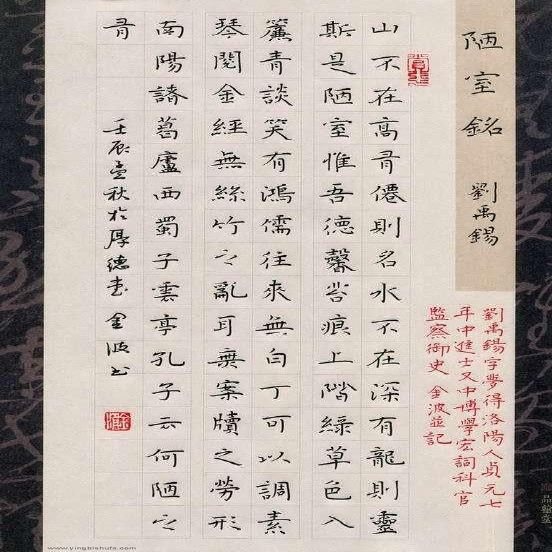 陋室銘 劉禹錫
劉禹錫字夢得洛陽人貞元七
年中進士又中博學宏詞科官
監察御史 金波並記
山不在高有僊則名水不在深有龍則靈
斯是陋室惟吾德馨苔痕上階綠草色入
簾青談笑有鴻儒往來無白丁可以調素
琴閱金經無絲竹之亂耳無案牘之勞形
南陽諸葛廬西蜀子雲亭孔子云何陋之
有
壬辰孟秋於厚德 金波書
www.yingbishufa.com